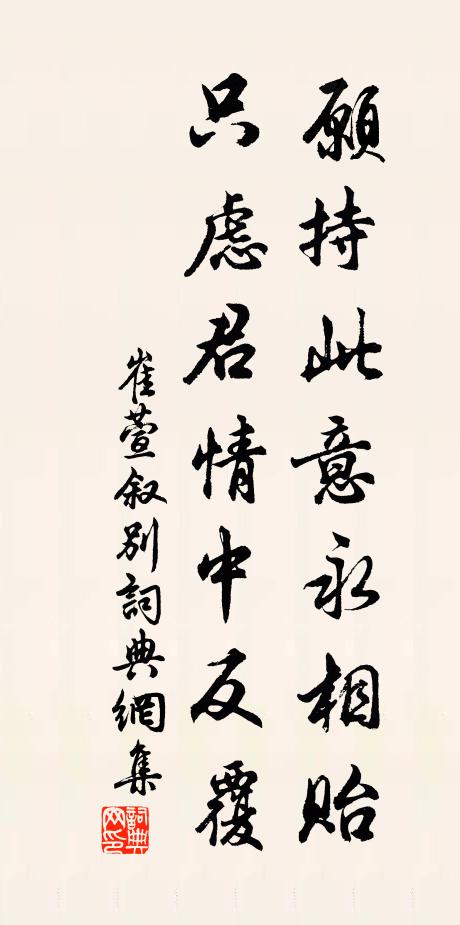 願持此意永相貽
只慮君情中反覆
崔萱叙别詞典網集
詞典
网印